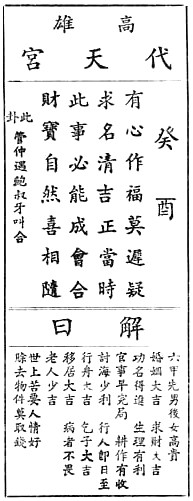 高雄
代天宮
癸酉
有心作福莫遲疑
求名清吉正當時
此事必能成會合
財寶自然喜相隨
此卦
管仲遇鮑叔牙叫合
解曰
六甲先男後女高貴
婚姻大吉 求財大吉
功名得進 生理有利
官事早完局 耕作有收
討海少利 行人即日至
行舟大吉 乞子大吉
移居大吉 病者不畏
老人少吉
世上苦要人情好
賒去物件莫取錢